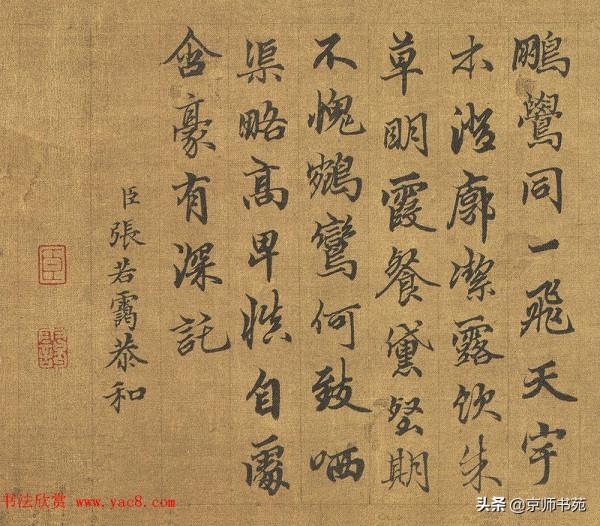 鵬鷽同一飛天宇
本澄廓潔露飲朱
草明霞餐黛壑期
不愧鵷鸞何致哂
渠略高卑慎自處
含豪有深託
臣張若靄恭和
书法欣赏 www.yac8.com
头条 @京师书苑